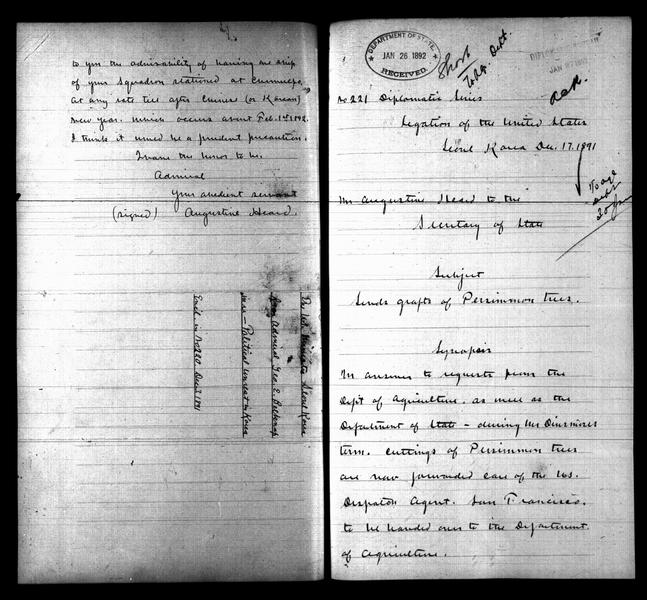 to you the advisability of having one ship
of your Squadron stationed at Chemulpo,
at any rate till after Chinese (or Korean)
New year. which occurs about Feb. 1st 1892.
I think it would be a prudent precaution.
I have the honor to be,
Admiral
Your obedient servant
(signed) Augustine Heard.
U.S. Minister Seoul Korea
Admiral Geo. E. Belknap
Political unrest in Korea
Encl in No 220 Dec 1891
DEPARTMENT OF STATE.
JAN 26 1892
RECEIVED.
Dept.
No 221 Diplomatic Series
Legation of the United States
Seoul Korea Dec. 17. 1891
To agl
Dept
20 Jan
Mr Augustine Heard to the
Secretary of State
Subject
Sends grafts of Persimmon trees.
Synopsis
In answer to requests from the
Dept of Agriculture. as well as the
Department of State - during Mr Dinsmores
term. Cuttings of Persimmon trees
are now forwarded care of the U.S.
Despatch Agent. San Francisco.
to be handed over to the Department
of Agriculture.